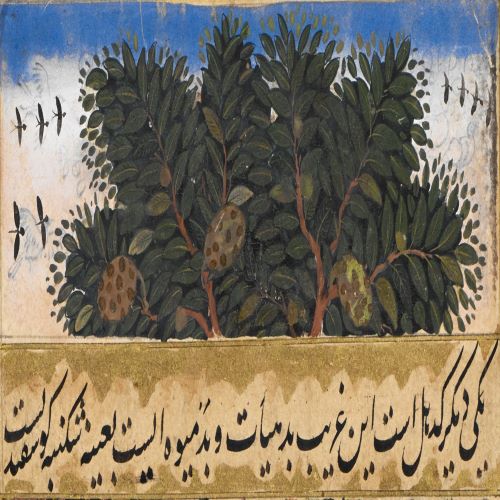 یکی دیگر کدهل است این غریب بد هیأت و بد میوه ایست بعینه شکنبه گوسفند است